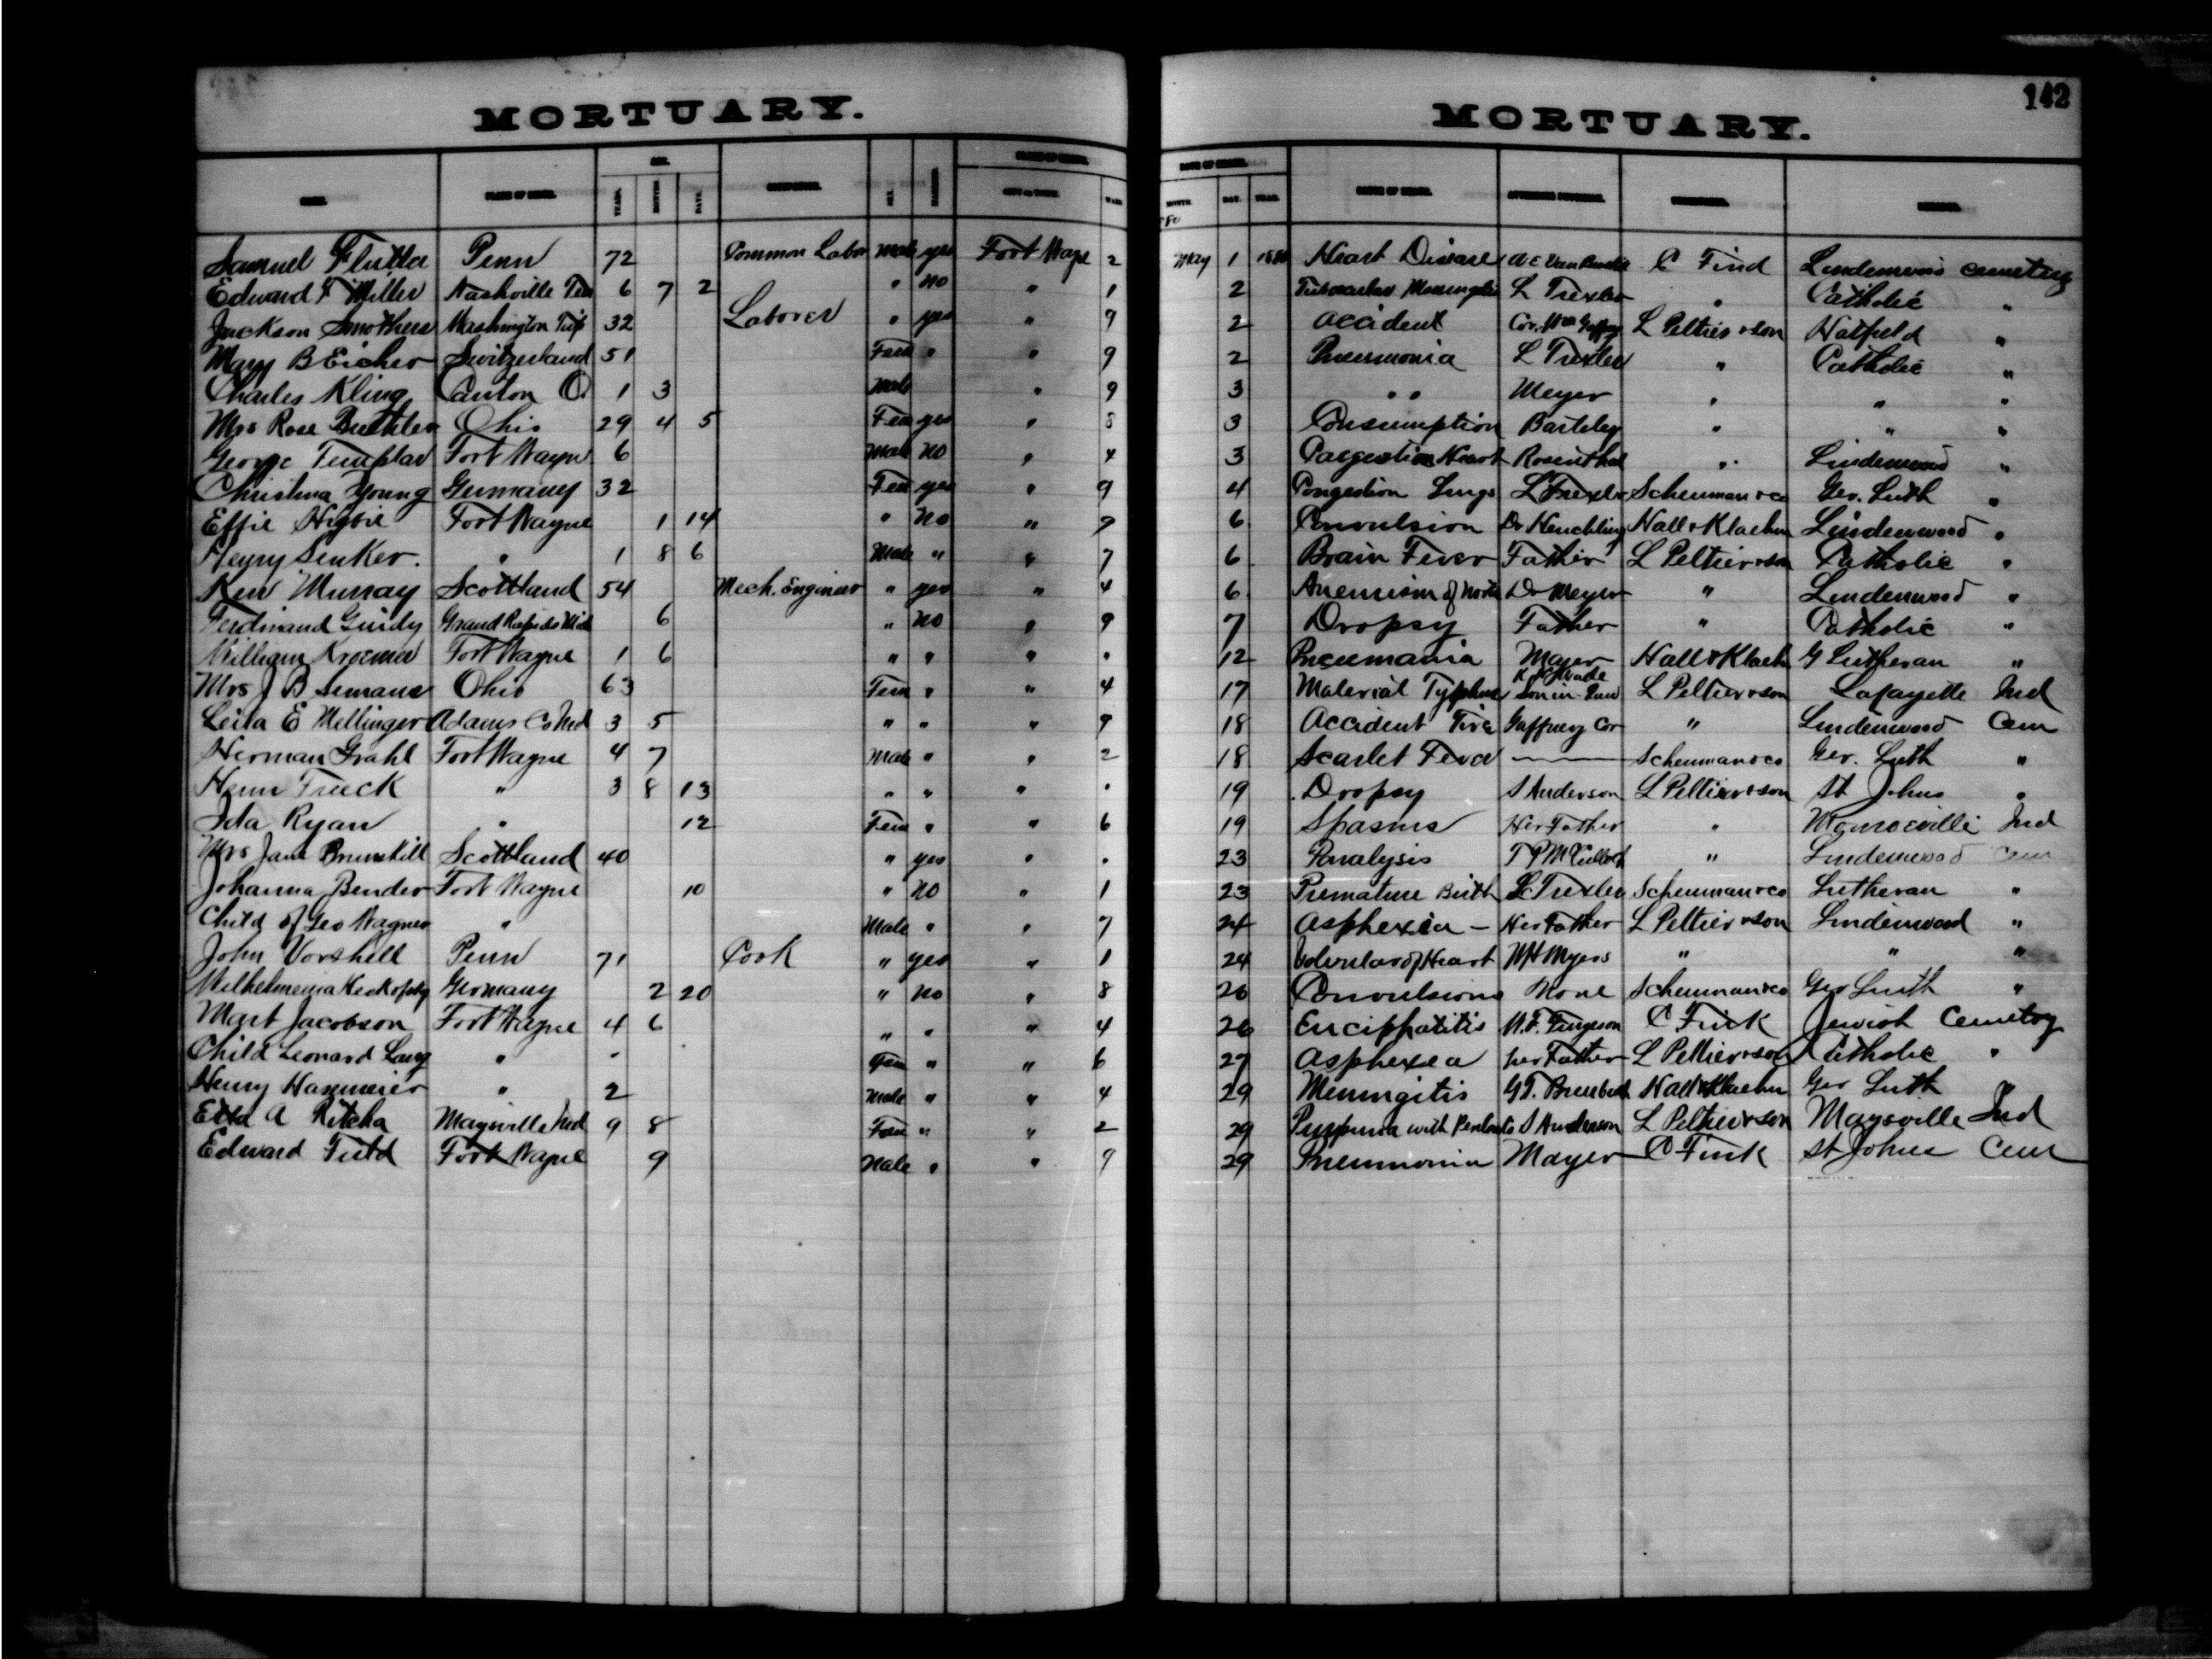 142
MORTUARY. MORTUARY.
AGE. PLACE OF DEATH. DATE OF DEATH.
NAME. PLACE OF BIRTH. YEARS. MONTHS. DAYS. OCCUPATION. SEX. MARRIED. CITY OR TOWN. WARD MONTH DAY. YEAR. CAUSE OF DEATH. ATTENDING PHYSICIAN. UNDERTAKER. REMARKS.
Samuel Penn 72 Common Labor Male yes Fort Wayne 2 May 1 Heart Disease C Find Lindenwood cemetery
Edward F Miller Nashville 6 7 2 " No " 1 2 L Trexler " Catholic "
Jackson Smothers Washington Twp 32 Laborer " yes " 9 2 accident Cor. Wm Gaffney L Peltier & son Hatfield "
Mary B Eicher Switzerland 51 Fem " " 9 2 Pneumonia L Trexler " Catholic "
Charles Kling Canton O. 1 3 Male " 9 3 " " Meyer " " "
Mrs Rose Ohio 29 4 5 Fem yes " 8 3 Consumption " " "
George Templar Fort Wayne 6 Male No " 4 3 Heart Rosenthal " Lindenwood "
Christina Young Germany 32 Fem yes " 9 4 Congestion Lungs L Trexler Scheuman & co Ger. Luth "
Effie Higbie Fort Wayne 1 14 " No " 9 6 Convulsion Dr Hall & Klaehn Lindenwood "
Henry Senker. " 1 8 6 Male " " 7 6 Brain Fever Father L Peltier & son Catholic "
Ken Murray Scottland 54 Mech. Engineer " yes " 4 6 Dr Meyer " Lindenwood "
Ferdinand Guidy Grand Rapids Mich 6 " No " 9 7 Dropsy Father " Catholic "
William Kroemer Fort Wayne 1 6 " " " " 12 Pneumania Mayer Hall & Klaehn G Lutheran "
Mrs J B Semans Ohio 63 Fem " " 4 17 Son in Law L Peltier & son Lafayette Ind
Leila E Mellinger Adams Co Ind 3 5 " " " 9 18 Accident Fire Gaffney Cor " Lindenwood Cem
Herman Grahl Fort Wayne 4 7 Male " " 2 18 Scarlet Fever — Scheuman & co Ger. Luth "
Truck " 3 8 13 " " " " 19 Dropsy S Anderson L Peltier & son St Johns "
Ida Ryan " 12 Fem " " 6 19 Spasms Her Father " Monroeville Ind
Mrs Jane Brunskill Scottland 40 " yes " " 23 Paralysis " Lindenwood Cem
Johanna Bender Fort Wayne 10 " No " 1 23 Premature Birth L Trexler Scheuman & co Lutheran "
Child of Geo Wagner " Male " " 7 24 Asphexia - Her Father L Peltier & son Lindenwood "
John Vorshell Penn 71 Cook " yes " 1 24 of Heart WH Myers " " "
Germany 2 20 " No " 8 26 Convulsions None Scheuman & co Ger Luth "
Mart Jacobson Fort Wayne 4 6 " " " 4 26 C Fink Jewish Cemetry
Child Leonard Lang " Fem " " 6 27 Asphexia her Father L Peltier & son Catholic "
Henry " 2 Male " " 4 29 Meningitis Hall & Klaehn Ger Luth "
Etta A Maysville Ind 9 8 Fem " " 2 29 Purpura with S Anderson L Peltier & son Maysville Ind
Edward Fort Wayne 9 Male " " 9 29 Pneumonia Mayer C Fink St Johns Cem